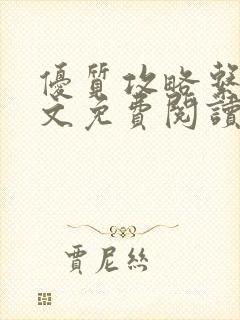 優質攻略
文免費閱讀
賈尼絲